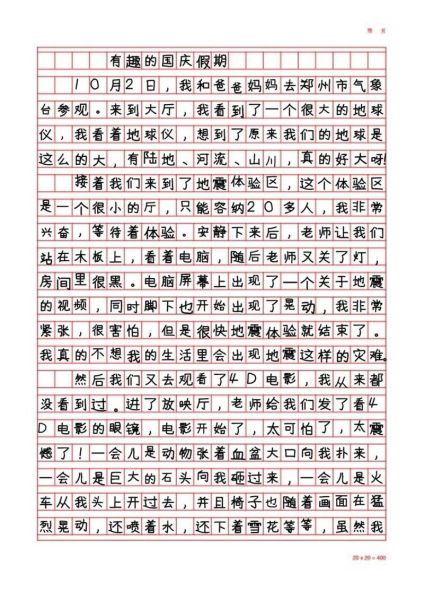 第 页
有趣的国庆假期
10月2日，我和爸爸妈妈去郑州市气象
台参观。来到大厅，我看到了一个很大的地球
仪，我看着地球仪，想到了原来我们的地球是
这么的大，有陆地、河流、山川，真的好大呀！
接着我们来到了地震体验区，这个体验区
是一个很小的厅，只能容纳20多人，我非常
兴奋，等待着体验。安静下来后，老师让我们
站在木板上，看着电脑，随后老师又关了灯，
房间里很黑。电脑屏幕上出现了一个关于地震
的视频，同时脚下也开始出现了晃动，我非常
紧张，很害怕，但是很快地震体验就结束了。
我真的不想我的生活里会出现地震这样的灾难。
然后我们又去观看了4D电影，我从来都
没看到过。进了放映厅，老师给我们发了看4
D电影的眼镜，电影开始了，太可怕了，太震
憾了！一会儿是动物张着血盆大口向我扑来，
一会儿是巨大的石头向我砸过来，一会儿是火
车从我头上开过去，并且椅子也随着画面在猛
烈晃动，还喷着水，还下着雪花等等，虽然我
20 x 20 = 400